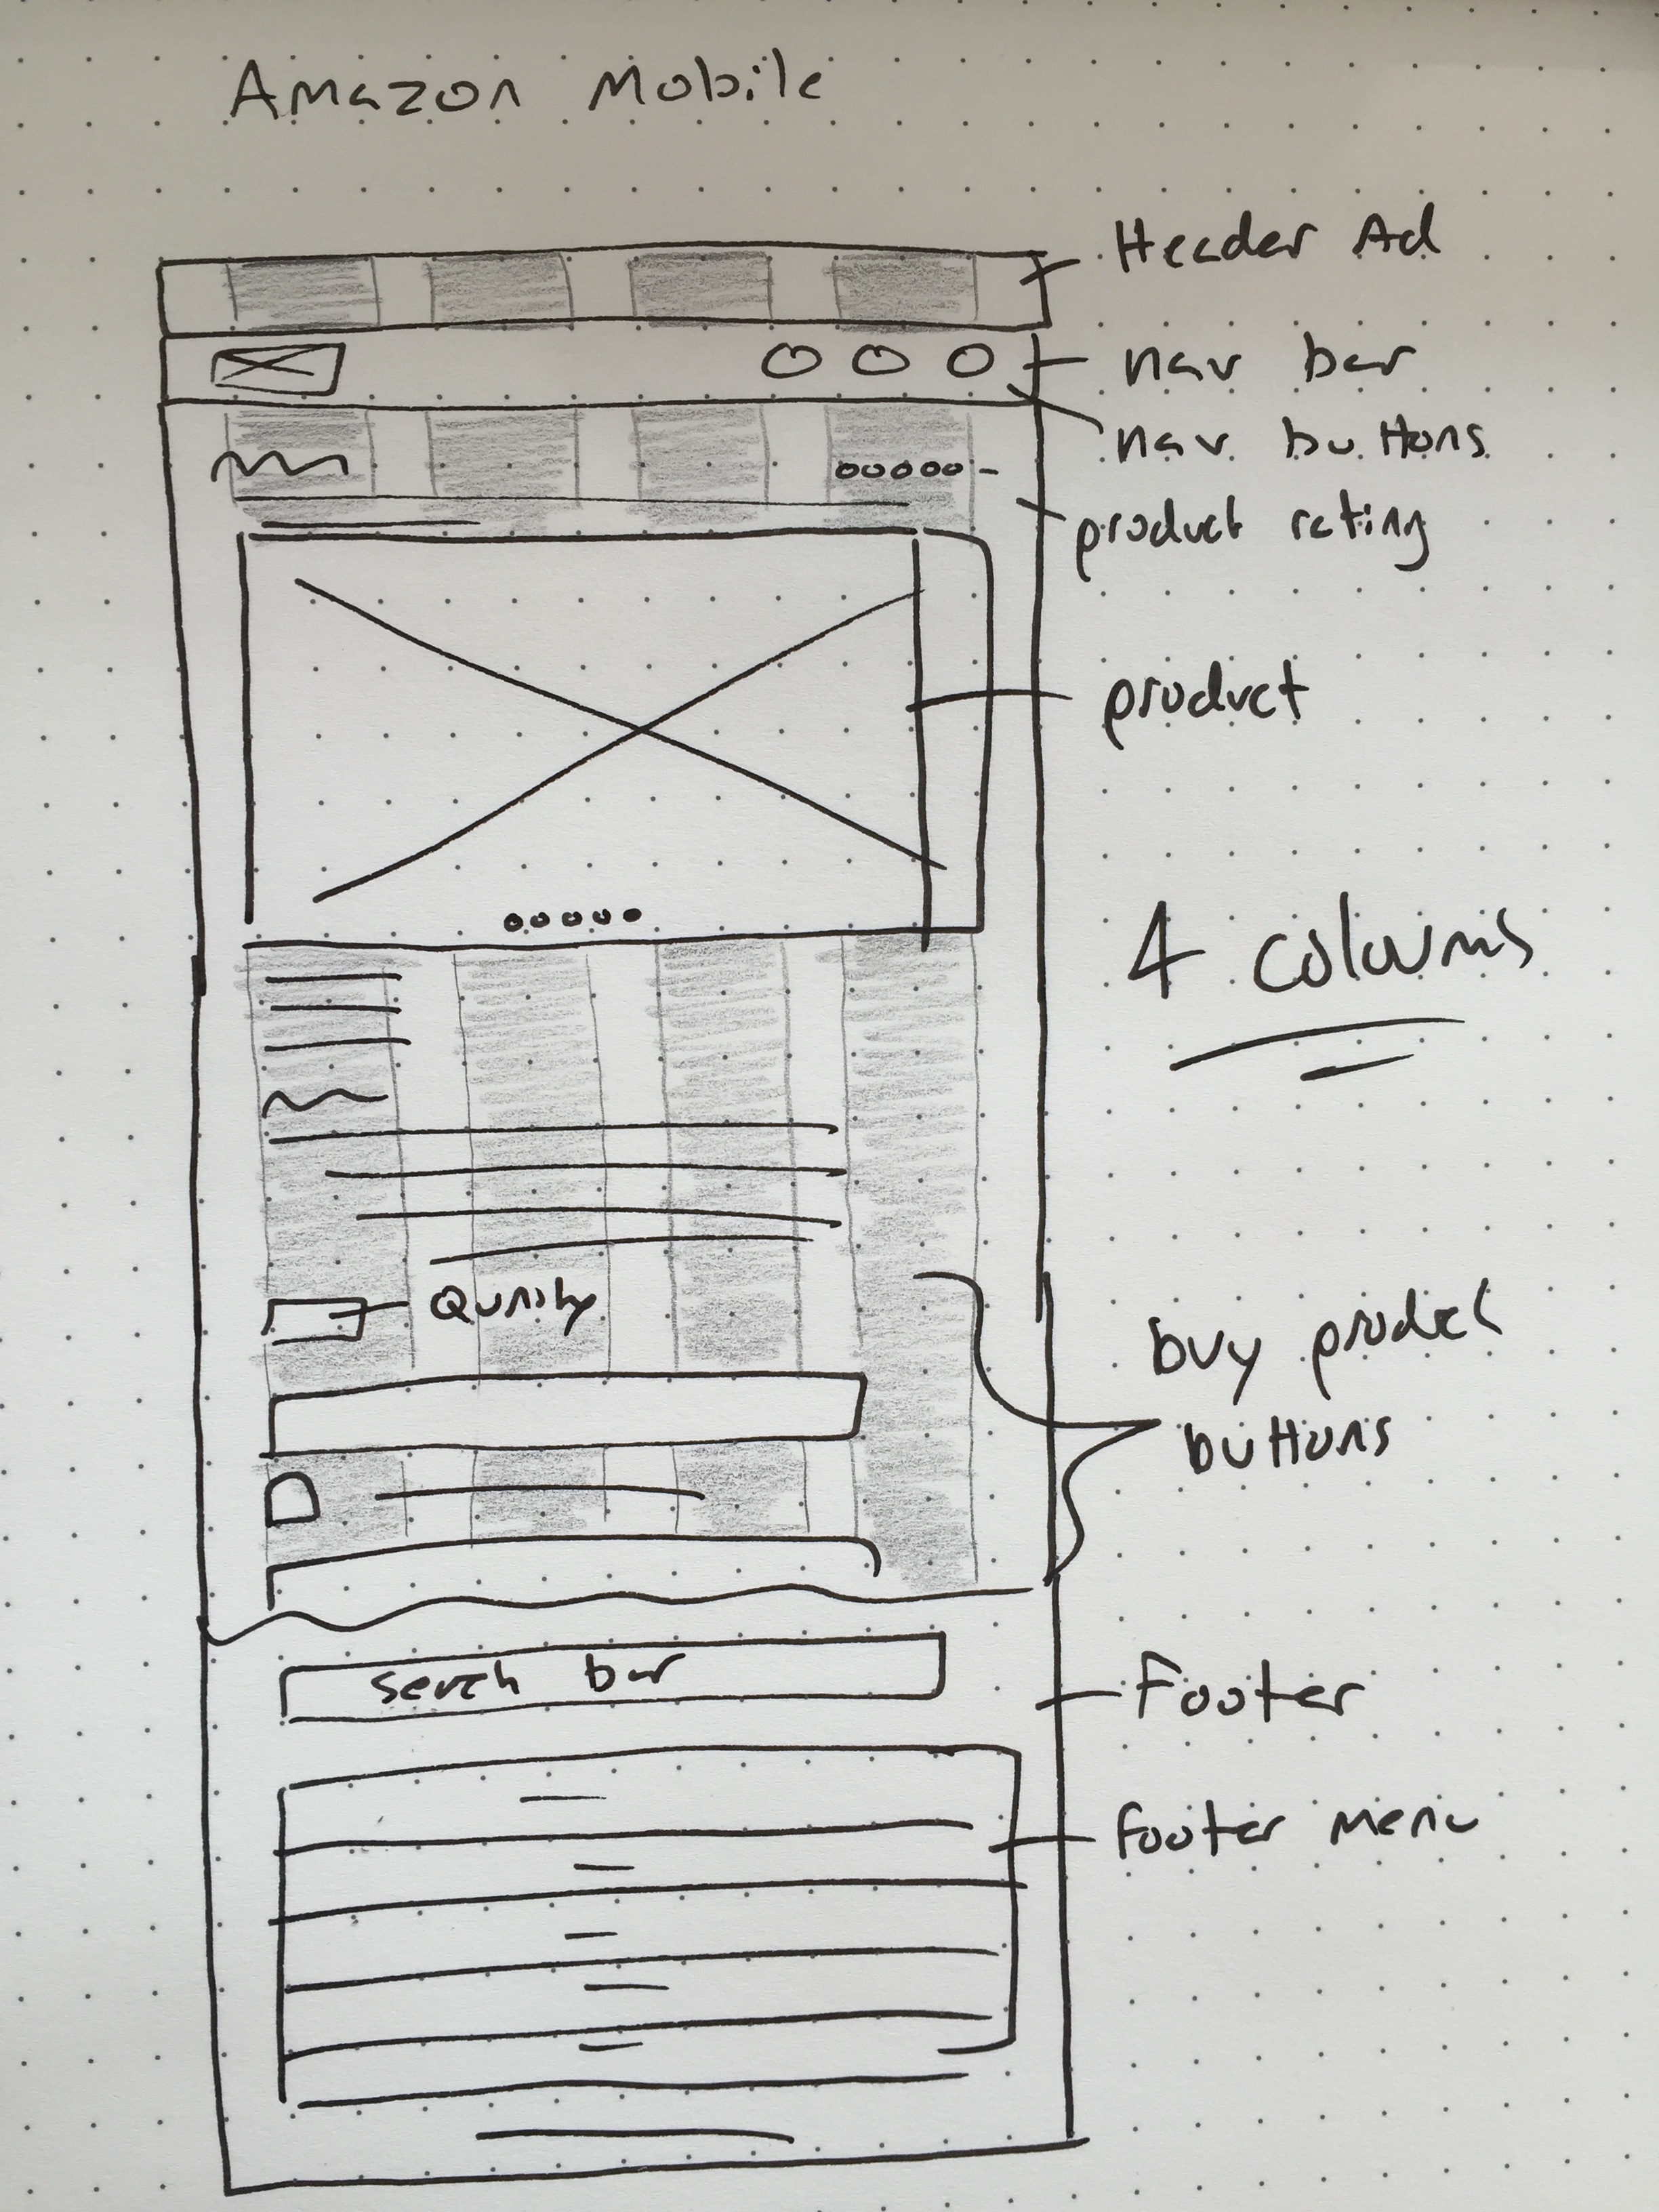 Amazon Mobile
Header Ad
nav bar
nav buttons
product rating
product
4 coloums
Qunity
buy product
buttons
serch bar
Footer
footer menu